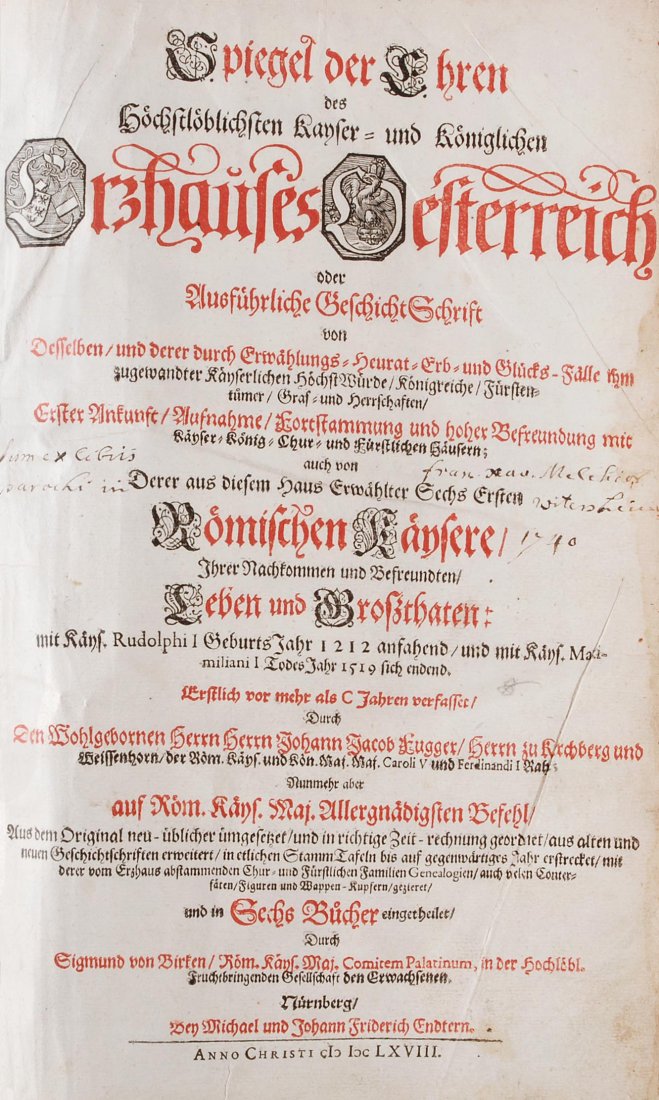 Spiegel der Ehren
des
Höchstlöblichsten Kayser- und Königlichen
Erzhauses Oesterreich
oder
Ausführliche GeschichtSchrift
von
Desselben/ und derer durch Erwählungs- Heurat- Erb- und Glücks-Fälle ihm
zugewandter Käyserlichen HöchstWürde/ Königreiche/ Fürsten-
tümer/ Graf- und Herrschaften/
Erster Ankunft/ Aufnahme/ Fortstammung und hoher Befreundung mit
Käyser- König- Chur- und Fürstlichen Häusern;
auch von
Sum ex libris
parochi in
fran. xav. Melchior
Derer aus diesem Haus Erwählter Sechs Ersten
Römischen Käysere/ 1740
Ihrer Nachkommen und Befreundten/
Leben und Großthaten:
mit Käys. Rudolphi I GeburtsJahr 1212 anfahend/ und mit Käys. Maxi-
miliani I TodesJahr 1519 sich endend.
Erstlich vor mehr als C Jahren verfasset/
Durch
Den Wohlgebornen Herrn Herrn Johann Jacob Fugger/ Herrn zu Kirchberg und
Weissenhorn/ der Röm. Käys. und Kön. Maj. Maj. Caroli V und Ferdinandi I Raht;
Nunmehr aber
auf Röm. Käys. Maj. Allergnädigsten Befehl/
Aus dem Original neu-üblicher ümgesetzet/ und in richtige Zeit-rechnung geordnet/ aus alten und
neuen Geschichtschriften erweitert/ in etlichen StammTafeln bis auf gegenwärtiges Jahr erstrecket/ mit
derer vom Erzhaus abstammenden Chur- und Fürstlichen Familien Genealogien/ auch vielen Conter-
fäten/ Figuren und Wappen-Kupfern/ gezieret/
und in Sechs Bücher eingetheilet/
Durch
Sigmund von Birken/ Röm. Käys. Maj. Comitem Palatinum, in der Hochlöbl.
Fruchtbringenden Gesellschaft den Erwachsenen.
Nürnberg/
Bey Michael und Johann Friderich Endtern.
ANNO CHRISTI cIɔ Iɔc LXVIII.